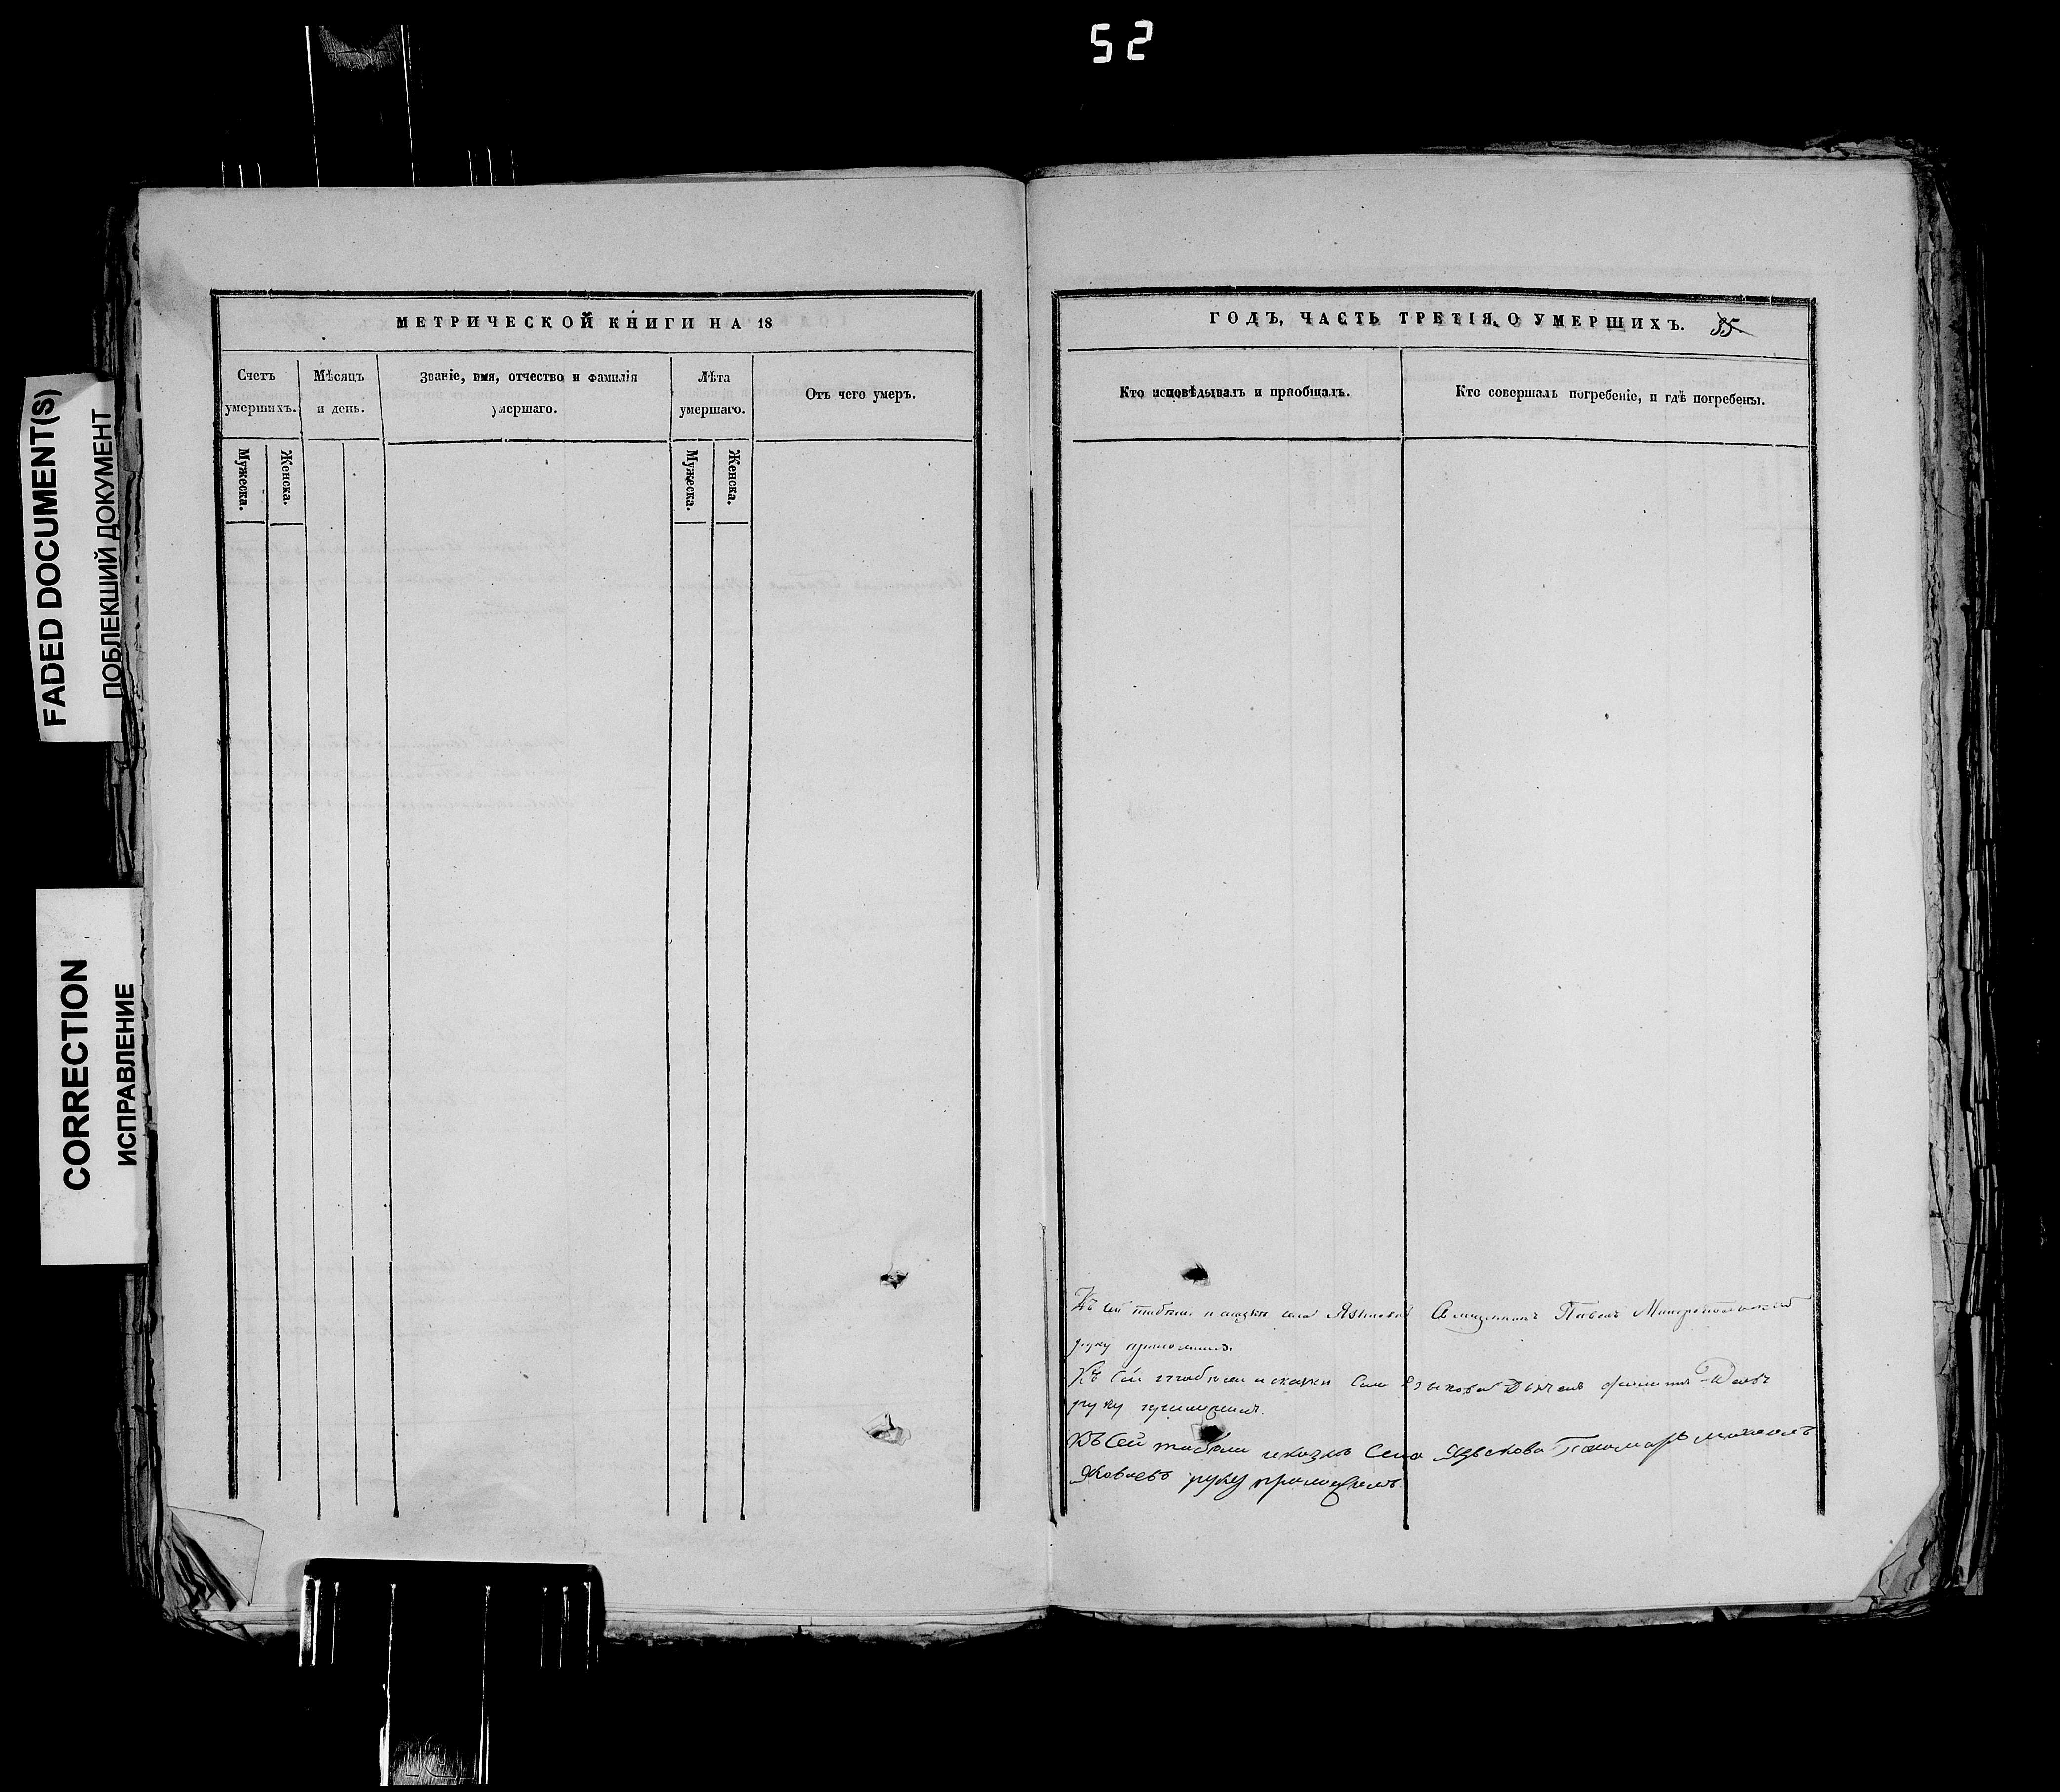 52
FADED DOCUMENT(S)
ПОБЛЕКШИЙ ДОКУМЕНТ
CORRECTION
ИСПРАВЛЕНИЕ
МЕТРИЧЕСКОЙ КНИГИ НА 18
Счетъ умершихъ.
Мѣсяцъ и день.
Званіе, имя, отчество и фамилія
умершаго.
Лѣта умершаго.
Отъ чего умеръ.
Мужеска.
Женска.
Мужеска.
Женска.
ГОДЪ, ЧАСТЬ ТРЕТІЯ, О УМЕРШИХЪ. 35
Кто исповѣдывалъ и пріобщалъ.
Кто совершалъ погребеніе, и гдѣ погребены.
Къ сей села Языкова Священникъ Павелъ
руку приложилъ.
Къ сей Села Языкова
руку
Къ Сей Села Языкова Пономарь Михаилъ
Яковлевъ руку приложилъ.